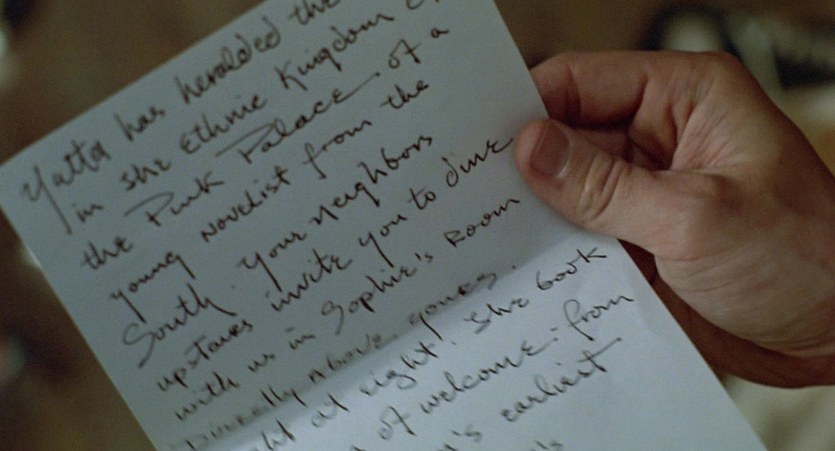 Yatta has heralded the
in the Ethnic Kingdom
the Pink Palace of a
young novelist from the
South. Your neighbors
upstairs invite you to dine
with us in Sophie's Room
Directly Above yours.
at eight. The book
of welcome: from
earliest